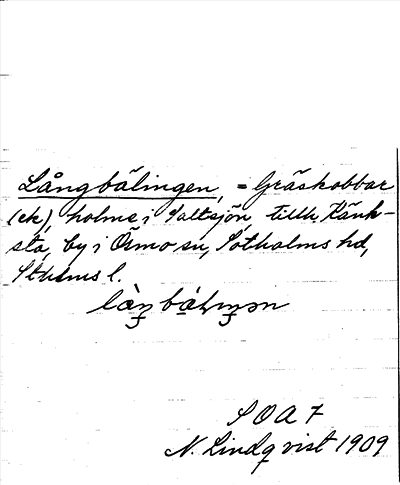 Långbälingen, = Gräskobbar
(ek), holme i Saltsjön, tillh. Känk-
sta, by i Ösmo sn, Sotholms hd,
Sthlms l.
SOA 7
N. Lindqvist 1909